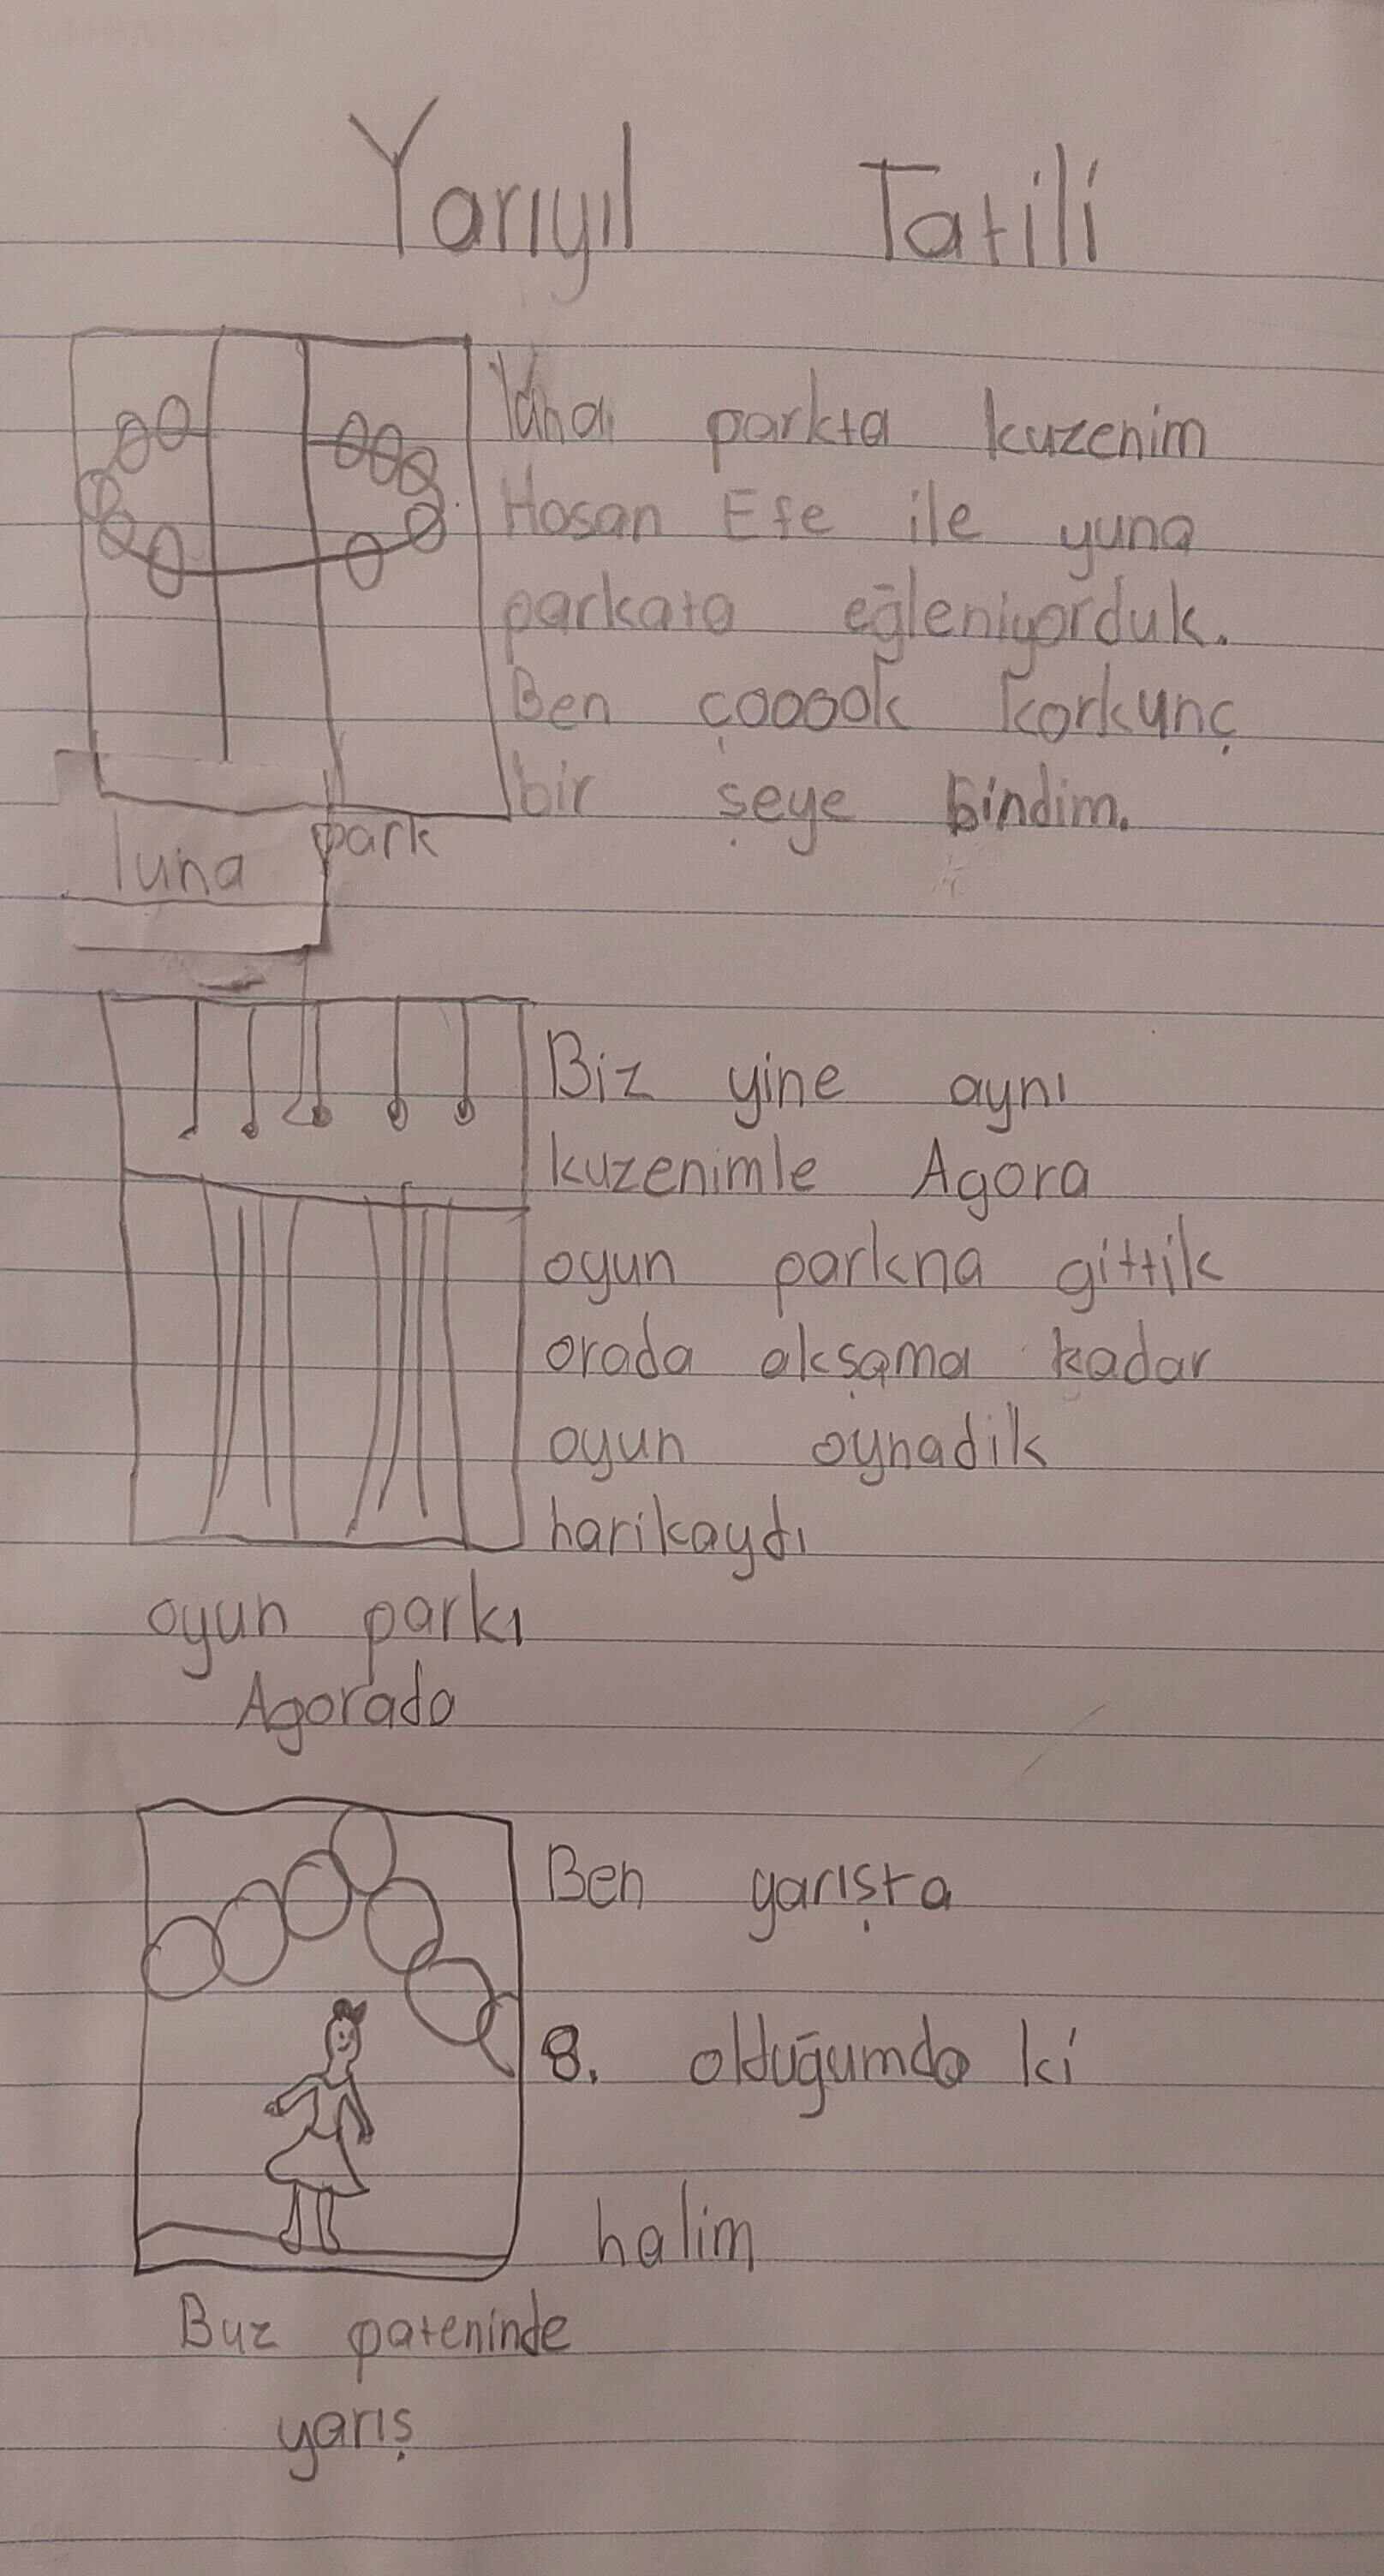 Yarıyıl Tatili
parkta kuzenim
Hasan Efe ile yuna
parkata eğleniyorduk.
Ben çooook korkunç
bir şeye bindim.
luna park
Biz yine aynı
kuzenimle Agora
oyun parkna gittik
orada akşama kadar
oyun oynadik
harikaydı
oyun parkı
Agorada
Ben yarışta
8. olduğumda ki
halim
Buz pateninde
yarış